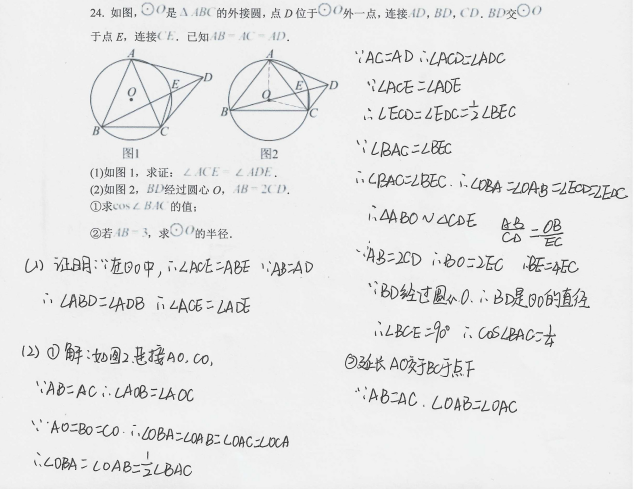 24. 如图，⊙O是△ABC的外接圆，点 D 位于⊙O外一点，连接AD，BD，CD．BD交⊙O
于点 E，连接CE．已知AB = AC = AD．
A
D
E
O
B
C
图1
A
D
E
O
B
C
图2
(1)如图 1，求证：∠ACE = ∠ADE．
(2)如图 2，BD经过圆心 O，AB = 2CD．
①求cos∠BAC的值；
②若AB = 3，求⊙O的半径．
(1) 证明:∵在⊙O中,∴∠ACE=ABE ∵AB=AD
∴ ∠ABD=∠ADB ∴∠ACE=∠ADE
(2) ①解:如图2连接AO,CO,
∵AB=AC ∴∠AOB=∠AOC
∵AO=BO=CO ∴∠OBA=∠OAB=∠OAC=∠OCA
∴∠OBA=∠OAB=½∠BAC
∵AC=AD ∴∠ACD=∠ADC
∵∠ACE=∠ADE
∴∠ECD=∠EDC=½∠BEC
∵∠BAC=∠BEC
∴∠BAC=∠BEC ∴∠OBA=∠OAB=∠ECD=∠EDC
∴△ABO∽△CDE AB/CD=OB/EC
∵AB=2CD ∴BO=2EC ∴BE=4EC
∵BD经过圆心O ∴BD是⊙O的直径
∴∠BCE=90° ∴COS∠BAC=¼
②延长AO交于BC于点F
∵AB=AC ∠OAB=∠OAC